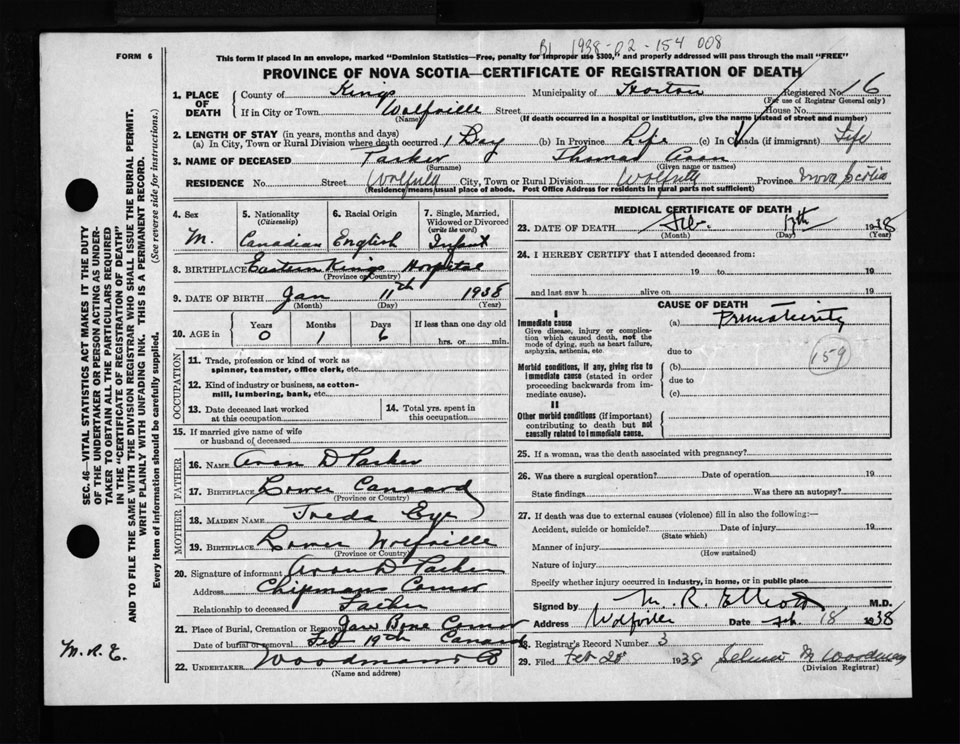 B1 1938-02-154 008
FORM 6
This form if placed in an envelope, marked "Dominion Statistics—Free, penalty for improper use $300," and properly addressed will pass through the mail "FREE"
PROVINCE OF NOVA SCOTIA—CERTIFICATE OF REGISTRATION OF DEATH
1. PLACE OF DEATH County of Kings Municipality of Horton Registered No. 16
(For use of Registrar General only)
If in City or Town Wolfville Street House No.
(Name) (If death occurred in a hospital or institution, give the name instead of street and number)
2. LENGTH OF STAY (in years, months and days)
(a) In City, Town or Rural Division where death occurred 1 Day (b) in Province Life (c) in Canada (if immigrant) Life
3. NAME OF DECEASED Parker Thomas
(Surname) (Given name or names)
RESIDENCE No. Street Wolfville City, Town or Rural Division Wolfville Province Nova Scotia
(Residence means usual place of abode. Post Office Address for residents in rural parts not sufficient)
4. Sex
M.
5. Nationality
(Citizenship)
Canadian
6. Racial Origin
English
7. Single, Married, Widowed or Divorced
(write the word)
Infant
8. BIRTHPLACE Eastern Kings Hospital
(Province or Country)
9. DATE OF BIRTH Jan 11th 1938
(Month) (Day) (Year)
10. AGE in Years Months Days If less than one day old
0 1 6 hrs. or min.
OCCUPATION
11. Trade, profession or kind of work as spinner, teamster, office clerk, etc.
12. Kind of industry or business, as cotton-mill, lumbering, bank, etc.
13. Date deceased last worked at this occupation
14. Total yrs. spent in this occupation
15. If married give name of wife or husband of deceased
FATHER
16. NAME Avon D Parker
17. BIRTHPLACE Lower Canard
(Province or Country)
MOTHER
18. MAIDEN NAME Freda Eye
19. BIRTHPLACE Lower Wolfville
(Province or Country)
20. Signature of informant Avon D Parker
Address Chipman Corner
Relationship to deceased Father
21. Place of Burial, Cremation or Removal Jaw Bone Corner
Date of burial or removal Feb 19th Canard
22. UNDERTAKER Woodmans
(Name and address)
MEDICAL CERTIFICATE OF DEATH
23. DATE OF DEATH Feb. 17th 1938
(Month) (Day) (Year)
24. I HEREBY CERTIFY that I attended deceased from:
19 to 19
and last saw h alive on 19
CAUSE OF DEATH
I
Immediate cause
Give disease, injury or complication which caused death, not the mode of dying, such as heart failure, asphyxia, asthenia, etc.
(a) Prematurity
due to
159
Morbid conditions, if any, giving rise to immediate cause (stated in order proceeding backwards from immediate cause).
(b)
due to
(c)
II
Other morbid conditions (if important) contributing to death but not causally related to immediate cause.
25. If a woman, was the death associated with pregnancy?
26. Was there a surgical operation? Date of operation 19
State findings Was there an autopsy?
27. If death was due to external causes (violence) fill in also the following:—
Accident, suicide or homicide? Date of injury 19
(State which)
Manner of injury
(How sustained)
Nature of injury
Specify whether injury occurred in industry, in home, or in public place
Signed by M. R. Elliott M.D.
Address Wolfville Date Feb. 18 1938
28. Registrar's Record Number 3
29. Filed Feb 28 1938 M Woodman
(Division Registrar)
SEC. 46—VITAL STATISTICS ACT MAKES IT THE DUTY
OF THE UNDERTAKER OR PERSON ACTING AS UNDER-
TAKER TO OBTAIN ALL THE PARTICULARS REQUIRED
IN THE "CERTIFICATE OF REGISTRATION OF DEATH"
AND TO FILE THE SAME WITH THE DIVISION REGISTRAR WHO SHALL ISSUE THE BURIAL PERMIT.
WRITE PLAINLY WITH UNFADING INK. THIS IS A PERMANENT RECORD.
Every item of information should be carefully supplied. (See reverse side for instructions.)
M.R.E.